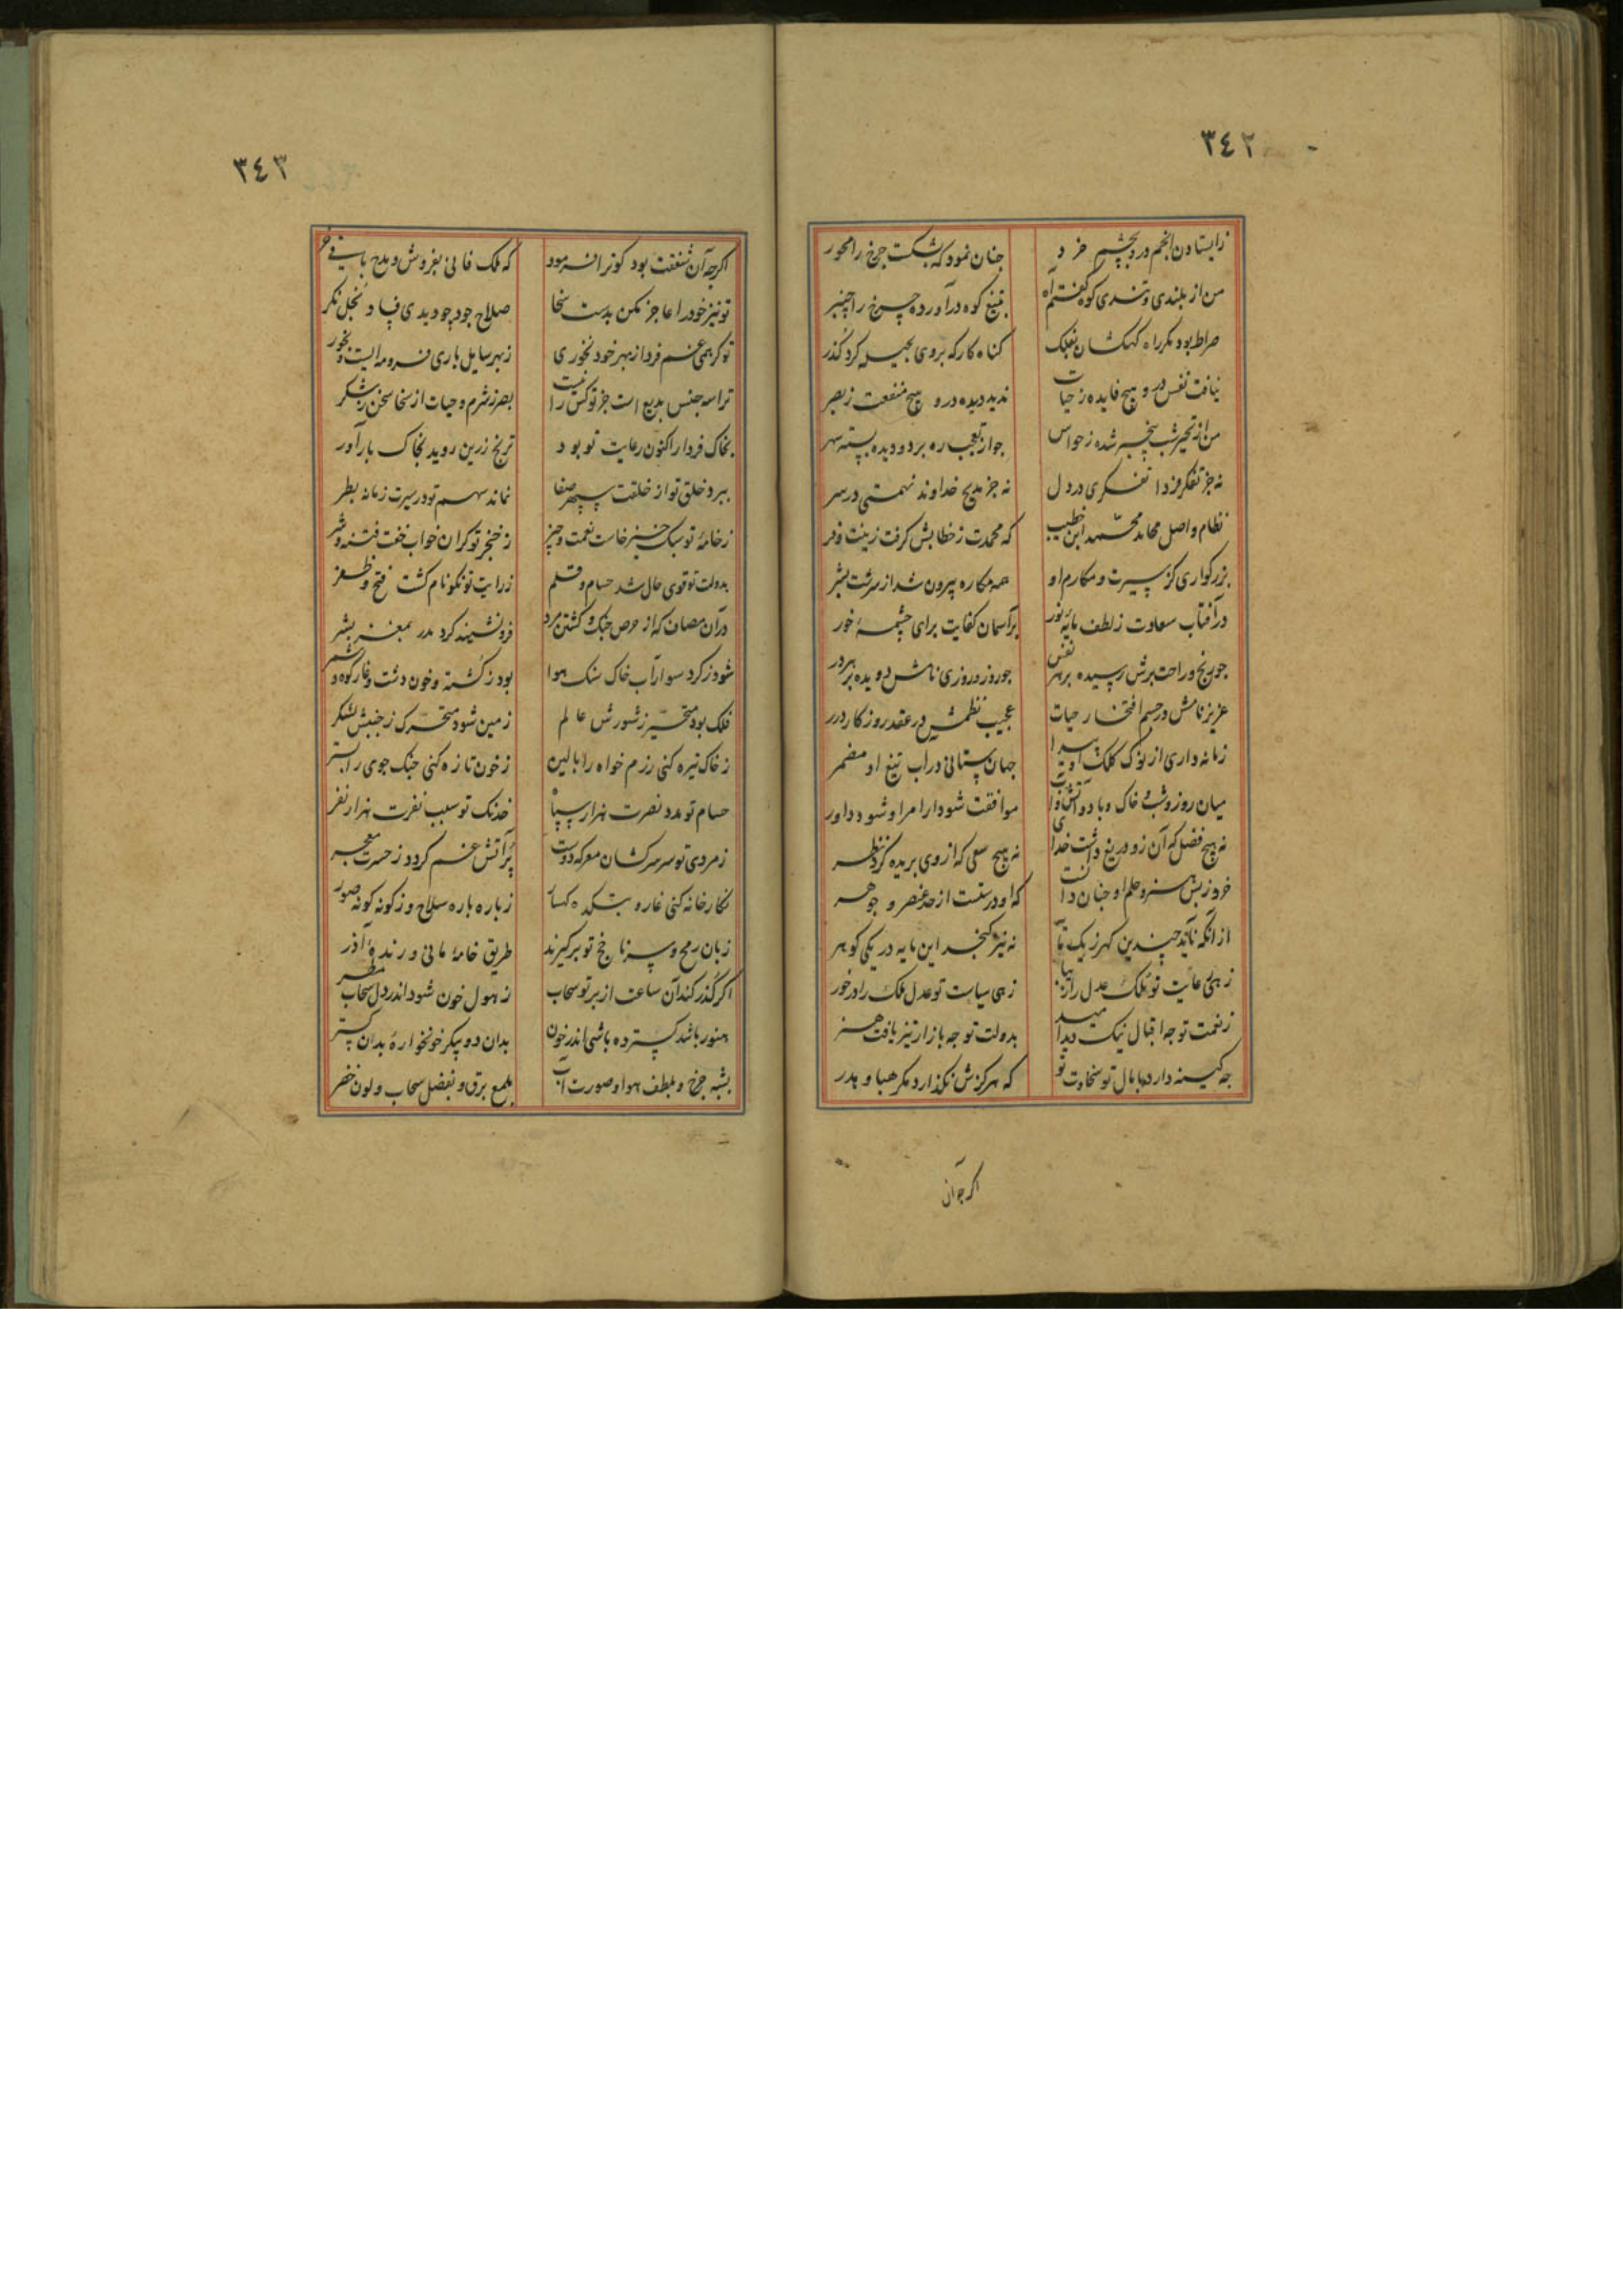 ٣٤٢
زایستادن انجم درو بچشم خرد
چنان نمود که بشکست چرخ را محور
من از بلندی و تندی کوه گفتم آه
بتیغ کوه درآورده چرخ را چنبر
صراط بود مکر راه کهکشان بفلک
کناه کار که بروی بحیله کرد گذر
نیافت نفس درو هیچ فایده ز حیات
ندید دیده درو هیچ منفعت ز بصر
من از تحیر شب بیخبر شده ز حواس
جو از تعجب ره بر دو دیده بسته سهر
نه جز تفکر فردا تفکری در دل
نه جز مدیح خداوند نهمتی در سر
نظام واصل محامد محمد ابن خطیب
که محمدت ز خطابش کرفت زینت و فر
بزرکواری کز سیرت و مکارم او
همه مکاره بیرون شد از سرشت بشر
در آفتاب سعادت ز لطف مایه نور
بر آسمان کفایت برای چشمه خور
جو رنج و راحت برش رسیده بهر نفس
جو روز و روزی نامش دویده بر هر در
عزیز نامش در جسم افتخار حیات
عجیب نظمش در عقد روزکار درر
زمانه داری از نوک کلک او پیدا
جهان ستانی در آب تیغ او مضمر
میان روز و شب و خاک و باد و آتش و آب
موافقت شود ار امر او شود داور
نه هیچ فضل که آن زو دریغ داشت خدای
نه هیچ سعی که از وی بریده کرد نظر
خرد ز بس هنر و حلم او چنان دانست
که او درست از حد عنصر و جوهر
از آنکه ناید چندین کهر ز یک
نه نیز کنجد این مایه در یکی کوهر
زهی عنایت تو ملک عدل را
زهی سیاست تو عدل ملک را در خور
ز نعمت تو جه اقبال نیک دید امید
بدولت تو جه بازار تیز یافت هنر
جه کینه دارد با مال تو سخاوت تو
که هرکزش نکذارد مکر هبا و هدر
اکر جه آن
٣٤٣
اکر جه آن شفقت بود کو ترا فرمود
که ملک فانی بفروش و مدح باقی خر
تو نیز خود را عاجز مکن بدست سخا
صلاح جود چو دیدی فساد بخل نکر
تو کر همی غم فردا ز بهر خود نخوری
ز بهر سایل باری فرومایست و بخور
ترا سه جنس بدیع است جز تو کس را نیست
بصر ز شرم و حیات از سخا سخن ز شکر
بخاک فردا ر اکنون رعایت تو بود
ترنج زرین روید بخاک بار آور
ببرد خلق تو از خلقت سپهر صفا
نماند سهم تو در سیرت زمانه بطر
ز خامه تو سبک خیز خاست نعمت و چیز
ز خنجر تو کران خواب خفت فتنه و شر
بدولت تو قوی حال شد حسام و قلم
ز رایت تو نکو نام کشت فتح و ظفر
در آن مصاف که از حرص جنک و کشتن مرد
فرو نشیند کرد بمغز بشر
شود ز کرد سوار آب خاک سنک هوا
بود ز کشته و خون دشت و غار کوه و شمر
فلک بود متحیر ز شورش عالم
زمین شود متحرک ز جنبش لشکر
ز خاک تیره کنی رزم خواه را بالین
ز خون تازه کنی جنک جوی را بستر
حسام تو مدد نصرت هزار سپاه
خدنک تو سبب نفرت هزار نفر
ز مردی تو سر سرکشان معرکه دوست
پر آتش غم کردد ز حسرت معجر
نکارخانه کنی غار و بتکده کهسار
ز باره باره سلاح و ز کونه کونه صور
زبان رمح و سر ناجخ تو برکیرند
طریق خامه مانی و رنده آذر
اکر گذر کند آن ساعت از بر تو سحاب
ز هول خون شود اندر دل سحاب مطر
هنوز باشد کسترده باشی اندر خون
بدان دو پیکر خونخواره بدان کستر
بشبه چرخ و بلطف هوا و صورت آب
بلمع برق و بفضل سحاب و لون خضر